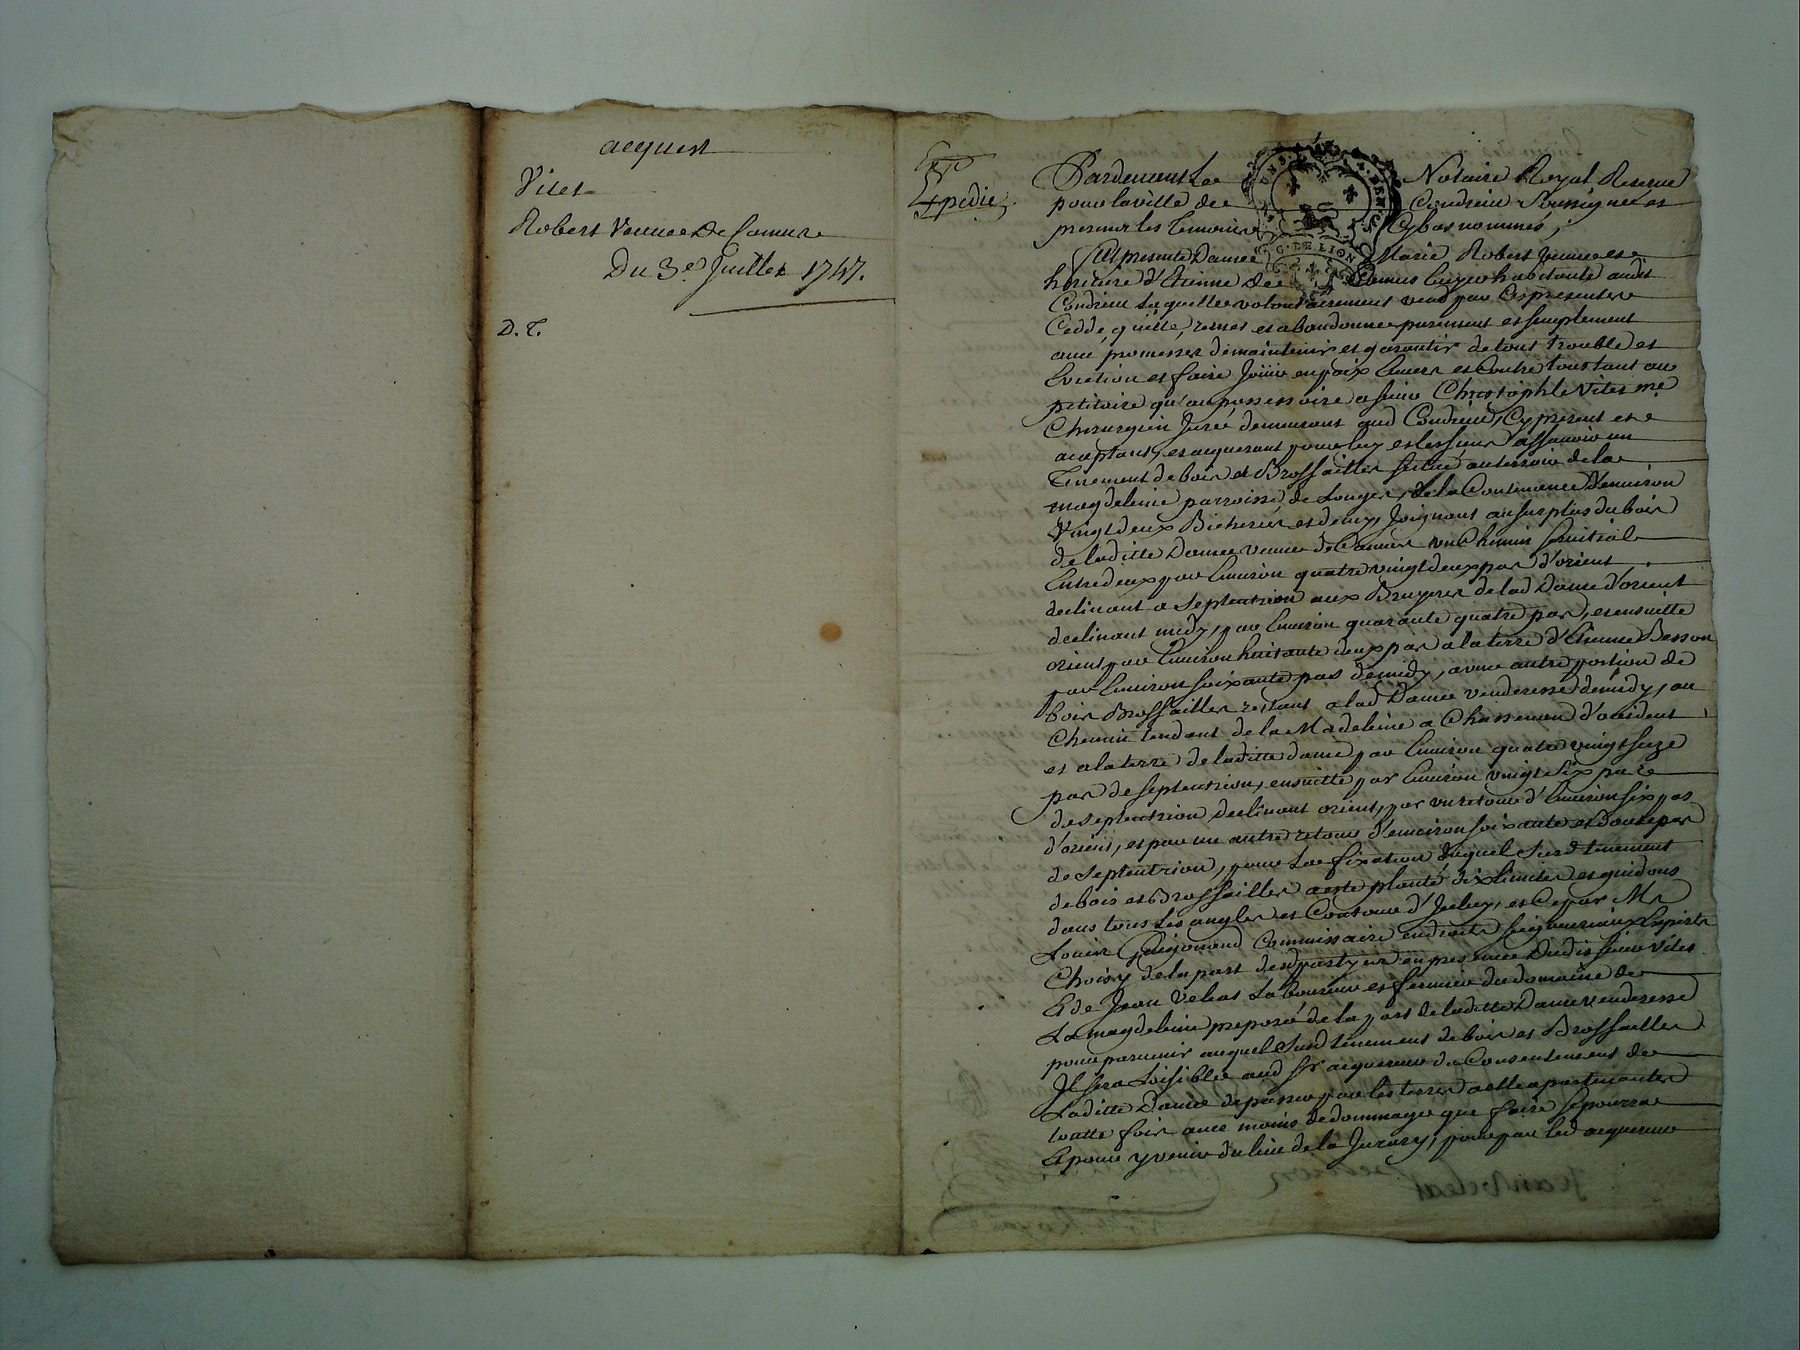 acquest
Vitet
Robert Veuve De Camus
Du 3e Juillet 1747.
D. C.
Expedié
Pardevant Le Notaire Royal Reservé
pour la ville de Condrieu Soussigné et
presents les Temoins Cybas nommés,
G. DE LION
fut presente Dame Marie Robert veuve et
heritiere d'Etienne de Camus luy vivant habitante audit
Condrieu laquelle volontairement vend par Ces presentes
Cedde, quitte, remet et abandonne purement et simplement
avec promesses de maintenir et garantir de tout trouble et
Eviction et faire Joüir en paix Envers et Contre tous tant au
petitoire qu'au possessoire a sieur Christophle Vitet me
Chirurgien Juré demeurant aud Condrieu, Cy present et
aceptant, et acquerant pour luy et les siens assavoir un
Tinement de bois et Brossailles scitué au terroir de la
magdeleine parroisse de Longes, de la Contenance d'Environ
Vingt deux Bicherées et demy, Joignant au surplus du bois
de laditte Dame veuve de Camus un Chemin
Entre deux par Environ quatre vingt deux pas d'orient
declinant a Septentrion aux Bruyeres de lad Dame d'orient
declinant midy, par Environ quarante quatre pas, et ensuitte
orient par Environ huitante deux pas a la terre d'Etienne Besson
par Environ soixante pas de midy, a une autre portion de
bois Brossailles restant a lad Dame venderesse de midy, au
Chemin tendant de la Madeleine a Chassenou d'occident
et a la terre de laditte dame par Environ quatre vingt seize
pas de septentrion, ensuitte par Environ vingt six pas
de septentrion declinant orient, par un retour d'Environ six pas
d'orient, et par un autre retour d'environ soixante et douze pas
de septentrion, pour La fixation duquel Susd tinement
de bois et Brossailles a esté planté dix limites et guidons
dans tous Les angles et Contours d'Jceluy, et Ce par Me
Louis Commissaire en droits seigneuriaux Expert
Choisy de la part desd partyes en presence Dudit sieur Vitet
Et de Jean Veleat Laboureur et fermier du domaine de
La magdeleine preposé de la part de laditte Dame venderesse
pour parvenir auquel Susd tinement de bois et Brossailles
Il sera Loisible aud Sr acquereur du Consentement de
Laditte Dame de passer par les terres a elle apartenantes
toutte fois avec moins de dommage que faire se pourra
Et pour y venir du lieu de la Jurary, pourra led acquereur